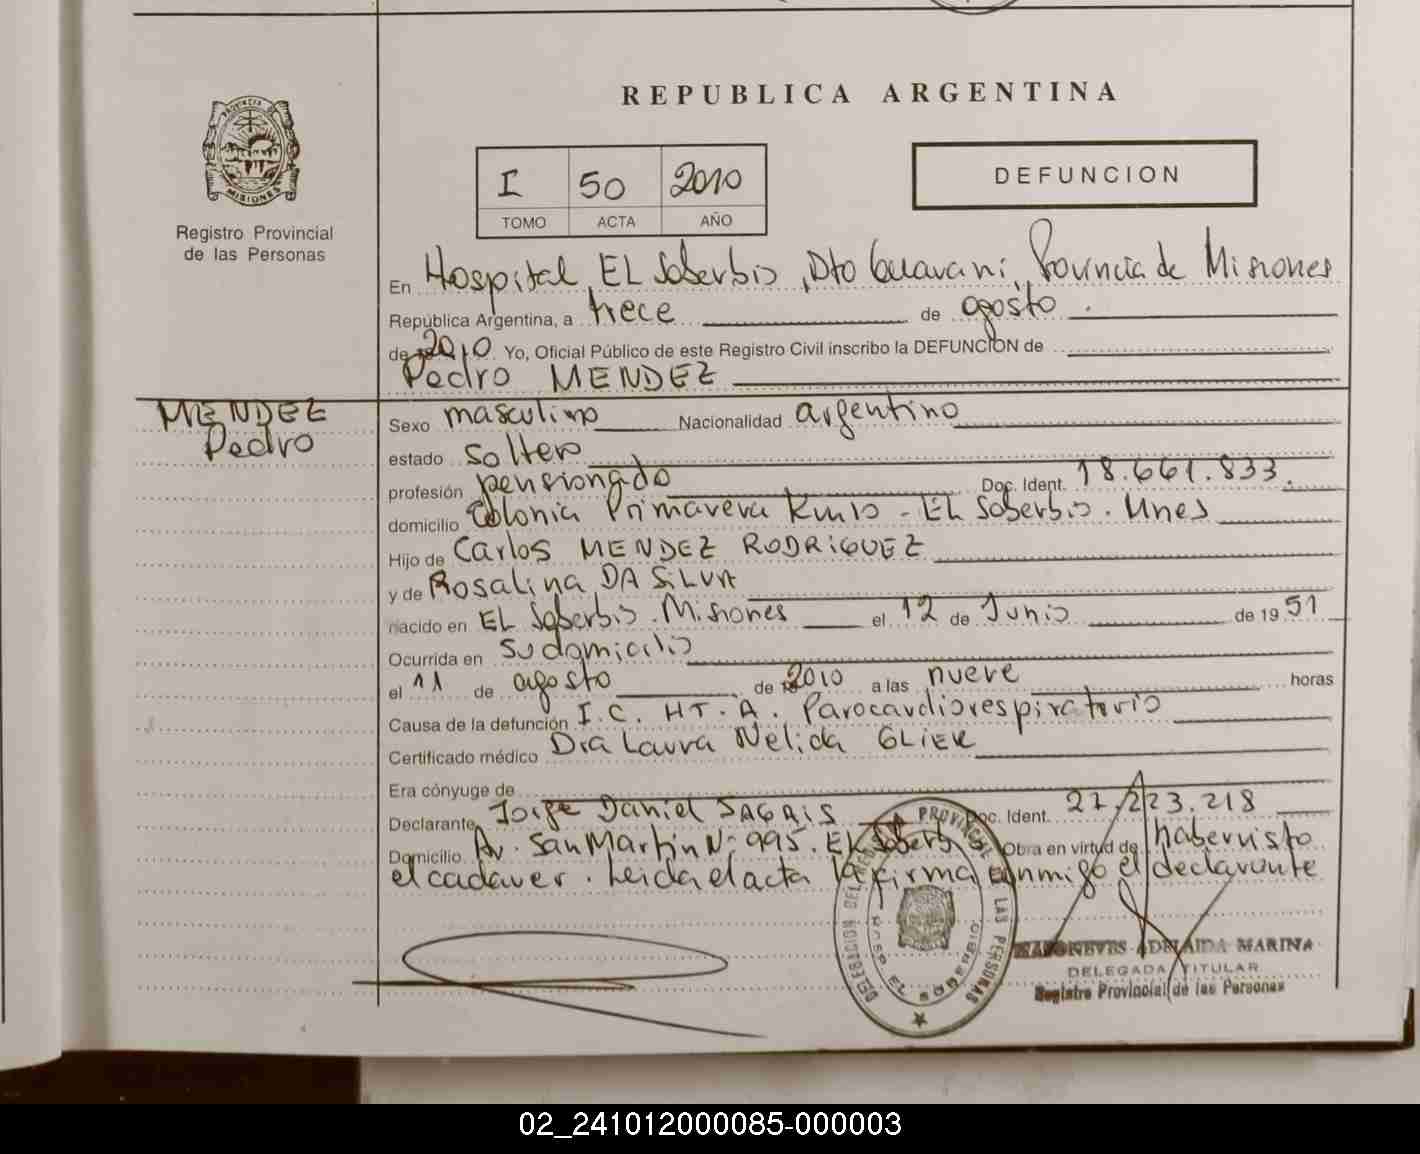 REPUBLICA ARGENTINA
PROVINCIA DE
MISIONES
Registro Provincial
de las Personas
I 50 2010
TOMO ACTA AÑO
DEFUNCION
En Hospital EL Soberbio, Dto Guarani, Provincia de Misiones
República Argentina, a trece de agosto.
de 2010. Yo, Oficial Público de este Registro Civil inscribo la DEFUNCION de
Pedro MENDEZ
MENDEZ
Pedro
Sexo masculino Nacionalidad argentino
estado soltero
profesión pensionado Doc. Ident. 18.661.833.
domicilio Colonia Primavera Km10 - EL Soberbio. Mnes
Hijo de Carlos MENDEZ RODRiGUEZ
y de Rosalina DA SiLVA
nacido en EL Soberbio. Misiones el 12 de Junio de 1951
Ocurrida en su domicilio
el 11 de agosto de 2010 a las nueve horas
Causa de la defunción I.C. HT.A. Parocardiorespiratorio
Certificado médico Dra Laura Nelida GLIER
Era cónyuge de
Declarante Jorge Daniel SAGRiS Doc. Ident. 27.223.218
Domicilio Av. San Martin Nº 995. EL Soberbio Obra en virtud de haber visto
el cadaver. Leida el acta la firma conmigo el declarante
DELEGACION DEL REGISTRO PROVINCIAL DE LAS PERSONAS
HOSP. EL SOBERBIO
ADELAIDA MARINA
DELEGADA TITULAR
Registro Provincial de las Personas
02_241012000085-000003